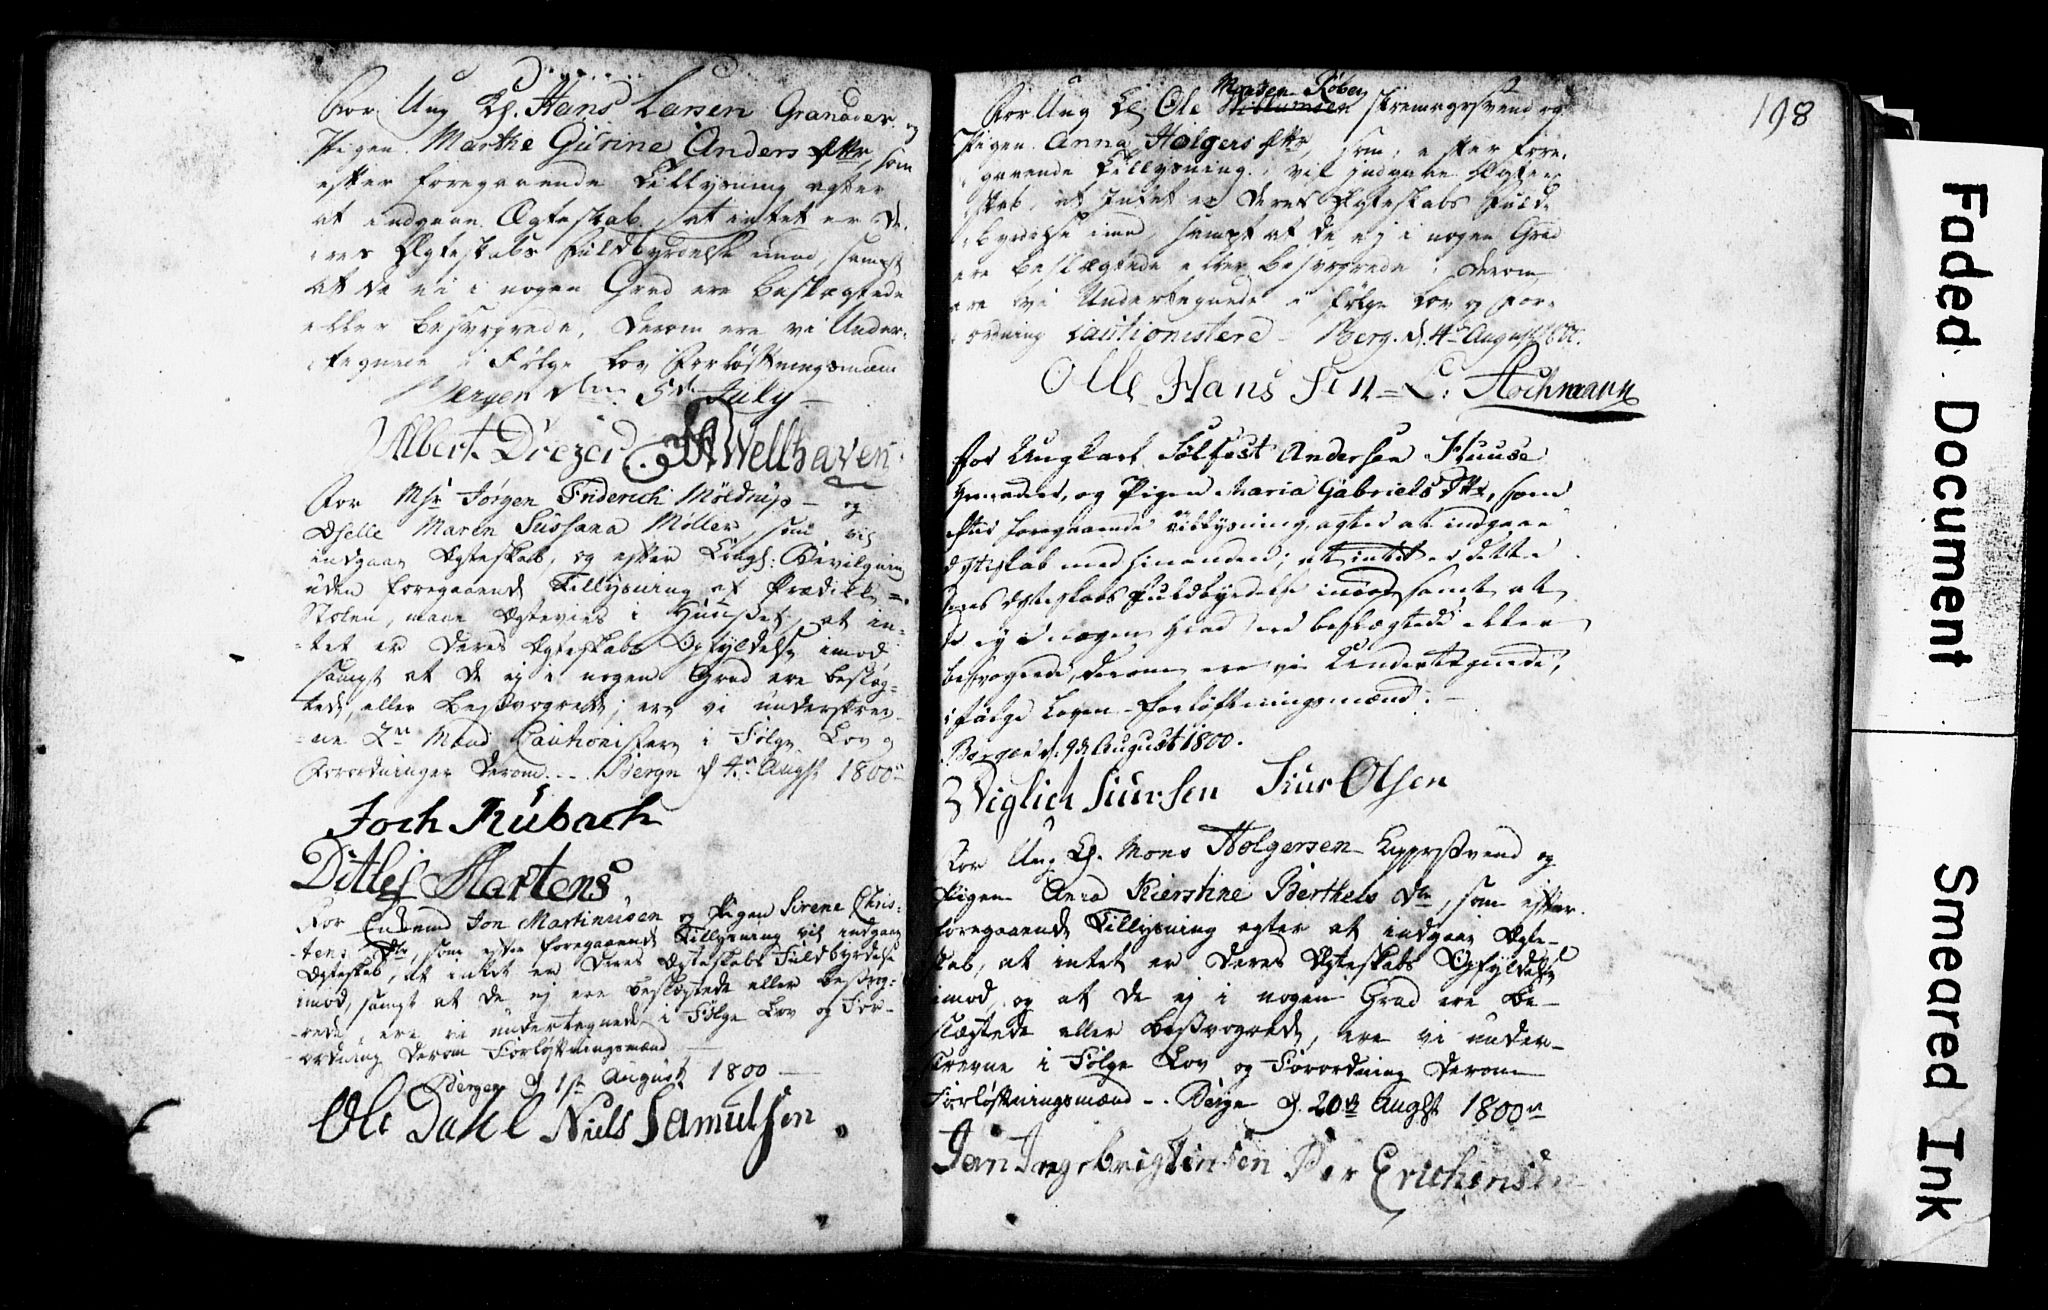 For Ung K. Hans Larsen Granader og
Pigen Marthe Gurine Anders dtr, som
efter foregaaende Tillysning agter
at indgaae Ægteskab, at intet er De-
res Ægteskabs Fuldbyrdelse imod, sampt
at de ei i nogen Grad ere beslægtede
eller besvogrede, derom ere vi Under-
tegnede i Følge Lov Forløftningsmænd
Bergen den 5te July
Albert Drezer JE Wellhaven
For Msr Jørgen Friderich Møldrup og
Dselle Maren Sussana Møller, som vil
indgaae Ægteskab, og efter Kongl: Bevilgning
uden foregaaende Tillysning af Prædike=
Stolen, maae Ægtevies i Huuset, at in-
tet er Deres Ægteskabs Opfyldelse imod
sampt at De ej i nogen Grad ere beslæg=
tede, eller Besvogrede; ere vi underskrev-
ne 2de Mænd Cautionister i Følge Lov og
Forordninger Derom... Bergen d 4de Augst 1800
Joch Rübach
Ditlef Martens
For Enkemd Jon Martinusen og Pigen Sirene Chris-
tens Dtr, som efter foregaaende Tillysning vil indgaae
Ægteskab, at intet er Deres Ægteskabs Fuldbyrdelse
imod, sampt at De ej ere beslægtede eller besvog-
rede, ere vi undertegnede i Følge Lov og For-
ordning Derom Forløftningsmænd
Bergen d 1ste August 1800
Ole Dahl Niels Samuelsen
198
Monsen Røberg
For Ung K Ole Willumsen svend og
Pigen Anna Holgers dtr, som, efter fore-
gaaende Tillysning, vil indgaae Ægte-
skab, at Intet er Deres Ægteskabs Fuld-
byrdelse imod, sampt at De ej i nogen Grad
ere beslægtede eller besvogrede; derom
ere vi Undertegnede i Følge Lov og For-
ordning Cautionistere Berg. d. 4de August 1800.
Olle Hans Sen L: Hochmann
For Ungkarl Sølfest Andersen Huuse
Granader, og Pigen Maria Gabriels Dtr, som
efter foregaaende Tillysning, agter at indgaae
Ægteskab med hinanden; at intet er dette
deres Ægteskabs Fuldbyrdelse imod samt at
de ej i nogen Grad ere beslægtede eller
besvogrede, derom ere vi Undertegnede,
i følge Loven Forløftningsmænd.
Bergen d. 9de August 1800.
Wiglich Siursen Siur Olsen
For Ung K. Mons Holgersen Kyperswend og
Pigen Anna Kierstine Berthels Dtr, som efter
foregaaende Tillysning agter at indgaae Ægte-
skab, at intet er Deres Ægteskabs Opfyldelse
imod, og at De ej i nogen Grad ere Be-
slægtede eller Besvogrede, ere vi under-
skrevne i Følge Lov og Forordning Derom
Forløftningsmænd -. Berge d. 20de Augst 1800
Jan Ingebrigtensen Per Erichensen
Faded Document
Smeared Ink